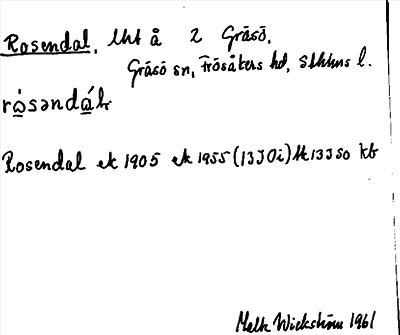 Rosendal, lht å 2 Gräsö,
Gräsö sn, Frösåkers hd, Sthlms l.
ròsəndáḷ
Rosendal ek 1905 ek 1955 (13J0i)
Melk Wickström 1961